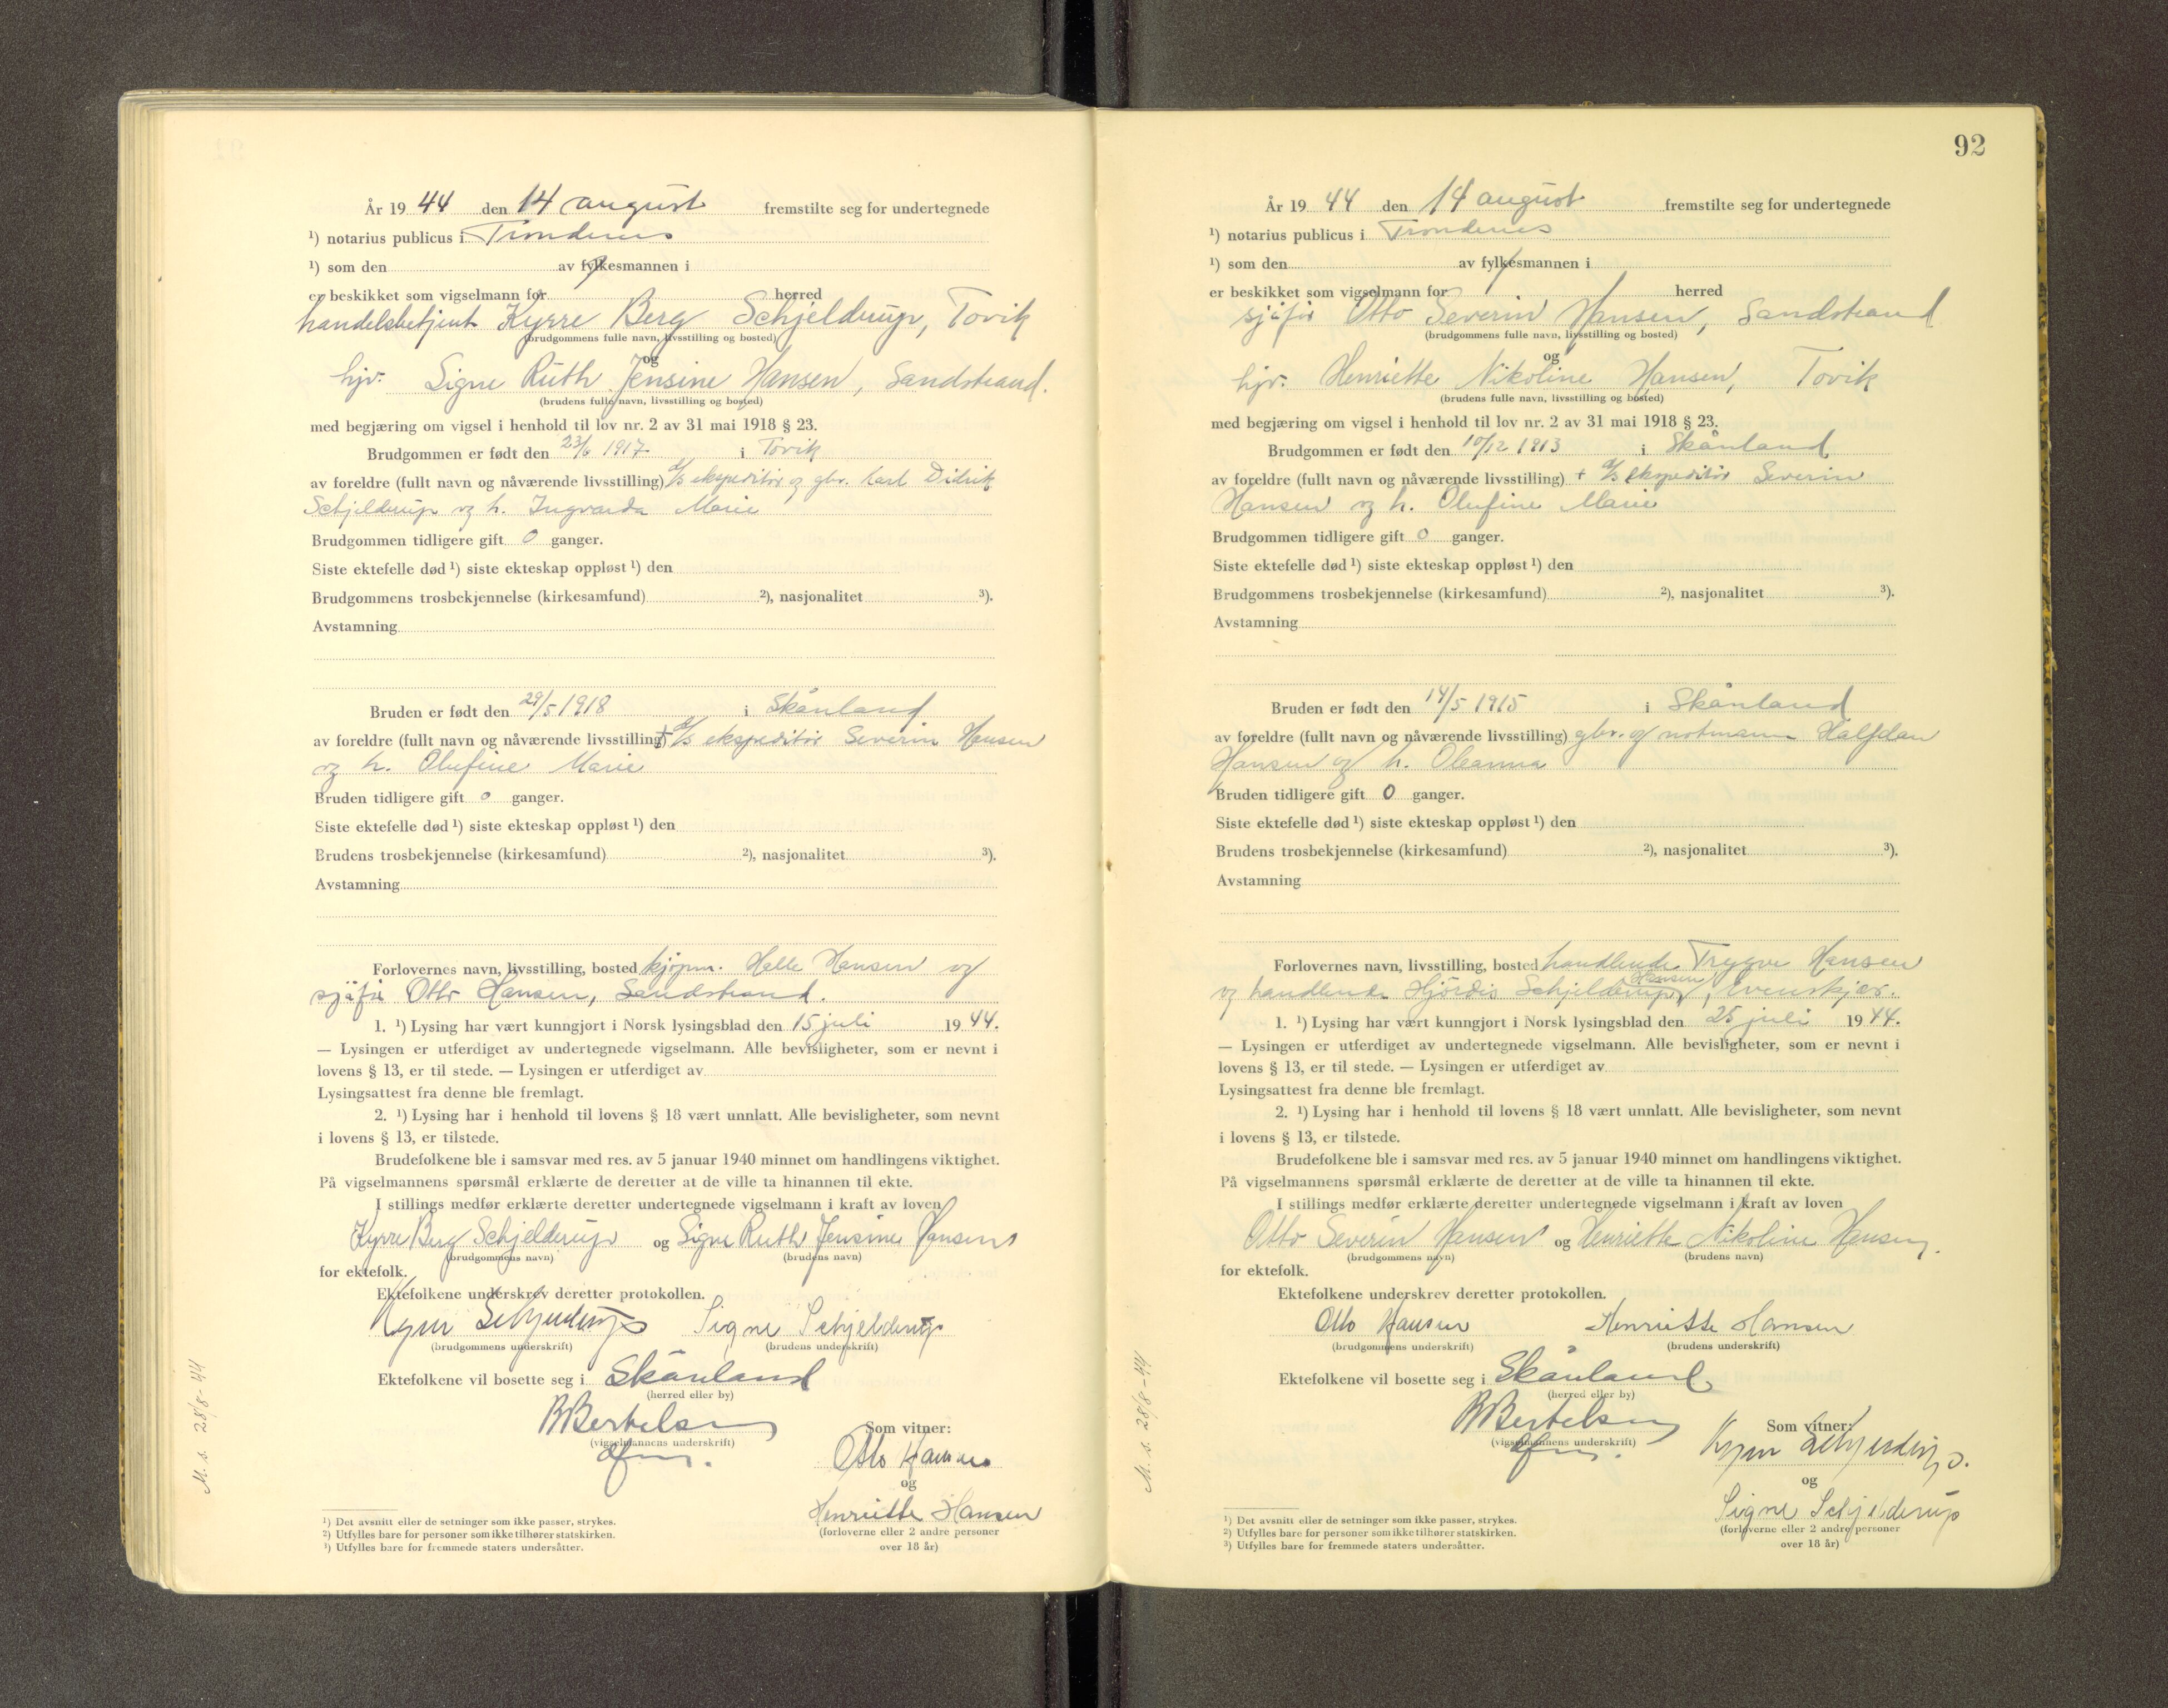 År 19 44 den 14 august fremstilte seg for undertegnede
¹) notarius publicus i Trondenes
¹) som den av fylkesmannen i
er beskikket som vigselmann for herred
handelsbetjent Kyrre Berg Schjelderup, Tovik
(brudgommens fulle navn, livsstilling og bosted)
og
hjv. Signe Ruth Jensine Hansen, Sandstrand.
(brudens fulle navn, livsstilling og bosted)
med begjæring om vigsel i henhold til lov nr. 2 av 31 mai 1918 § 23.
Brudgommen er født den 23/6 1917 i Tovik
av foreldre (fullt navn og nåværende livsstilling) d/s ekspeditør og gbr. Karl Didrik
Schjelderup og h. Ingvarda Marie
Brudgommen tidligere gift 0 ganger.
Siste ektefelle død ¹) siste ekteskap oppløst ¹) den
Brudgommens trosbekjennelse (kirkesamfund) ²), nasjonalitet ³).
Avstamning
Bruden er født den 29/5 1918 i Skånland
av foreldre (fullt navn og nåværende livsstilling) + d/s ekspeditør Severin Hansen
og h. Olufine Marie
Bruden tidligere gift 0 ganger.
Siste ektefelle død ¹) siste ekteskap oppløst ¹) den
Brudens trosbekjennelse (kirkesamfund) ²), nasjonalitet ³).
Avstamning
Forlovernes navn, livsstilling, bosted kjøpm. Helle Hansen og
sjåfør Otto Hansen, Sandstrand.
1. ¹) Lysing har vært kunngjort i Norsk lysingsblad den 15 juli 19 44.
— Lysingen er utferdiget av undertegnede vigselmann. Alle bevisligheter, som er nevnt i
lovens § 13, er til stede. — Lysingen er utferdiget av
Lysingsattest fra denne ble fremlagt.
2. ¹) Lysing har i henhold til lovens § 18 vært unnlatt. Alle bevisligheter, som nevnt
i lovens § 13, er tilstede.
Brudefolkene ble i samsvar med res. av 5 januar 1940 minnet om handlingens viktighet.
På vigselmannens spørsmål erklærte de deretter at de ville ta hinannen til ekte.
I stillings medfør erklærte deretter undertegnede vigselmann i kraft av loven
Kyrre Berg Schjelderup og Signe Ruth Jensine Hansen
(brudgommens navn) (brudens navn)
for ektefolk.
Ektefolkene underskrev deretter protokollen.
Kyrre Schjelderup Signe Schjelderup
(brudgommens underskrift) (brudens underskrift)
Ektefolkene vil bosette seg i Skånland
(herred eller by)
B Bertelsen
(vigselmannens underskrift)
dfm.
Som vitner:
Otto Hansen
og
Henriette Hansen
(forloverne eller 2 andre personer
over 18 år)
M. s. 28/8-44
¹) Det avsnitt eller de setninger som ikke passer, strykes.
²) Utfylles bare for personer som ikke tilhører statskirken.
³) Utfylles bare for fremmede staters undersåtter.
92
År 19 44 den 14 august fremstilte seg for undertegnede
¹) notarius publicus i Trondenes
¹) som den av fylkesmannen i
er beskikket som vigselmann for herred
sjåfør Otto Severin Hansen, Sandstrand
(brudgommens fulle navn, livsstilling og bosted)
og
hjv. Henriette Nikoline Hansen, Tovik
(brudens fulle navn, livsstilling og bosted)
med begjæring om vigsel i henhold til lov nr. 2 av 31 mai 1918 § 23.
Brudgommen er født den 10/12 1913 i Skånland
av foreldre (fullt navn og nåværende livsstilling) + d/s ekspeditør Severin
Hansen og h. Olufine Marie
Brudgommen tidligere gift 0 ganger.
Siste ektefelle død ¹) siste ekteskap oppløst ¹) den
Brudgommens trosbekjennelse (kirkesamfund) ²), nasjonalitet ³).
Avstamning
Bruden er født den 14/5 1915 i Skånland
av foreldre (fullt navn og nåværende livsstilling) gbr. og notmann Halfdan
Hansen og h. Oleanna
Bruden tidligere gift 0 ganger.
Siste ektefelle død ¹) siste ekteskap oppløst ¹) den
Brudens trosbekjennelse (kirkesamfund) ²), nasjonalitet ³).
Avstamning
Forlovernes navn, livsstilling, bosted handlende Trygve Hansen
og handlende Hjördis Schjelderup Hansen, Evenskjær.
1. ¹) Lysing har vært kunngjort i Norsk lysingsblad den 25 juli 19 44.
— Lysingen er utferdiget av undertegnede vigselmann. Alle bevisligheter, som er nevnt i
lovens § 13, er til stede. — Lysingen er utferdiget av
Lysingsattest fra denne ble fremlagt.
2. ¹) Lysing har i henhold til lovens § 18 vært unnlatt. Alle bevisligheter, som nevnt
i lovens § 13, er tilstede.
Brudefolkene ble i samsvar med res. av 5 januar 1940 minnet om handlingens viktighet.
På vigselmannens spørsmål erklærte de deretter at de ville ta hinannen til ekte.
I stillings medfør erklærte deretter undertegnede vigselmann i kraft av loven
Otto Severin Hansen og Henriette Nikoline Hansen.
(brudgommens navn) (brudens navn)
for ektefolk.
Ektefolkene underskrev deretter protokollen.
Otto Hansen Henriette Hansen
(brudgommens underskrift) (brudens underskrift)
Ektefolkene vil bosette seg i Skånland
(herred eller by)
B Bertelsen
(vigselmannens underskrift)
dfm.
Som vitner:
Kyrre Schjelderup.
og
Signe Schjelderup
(forloverne eller 2 andre personer
over 18 år)
M. s. 28/8-44
¹) Det avsnitt eller de setninger som ikke passer, strykes.
²) Utfylles bare for personer som ikke tilhører statskirken.
³) Utfylles bare for fremmede staters undersåtter.